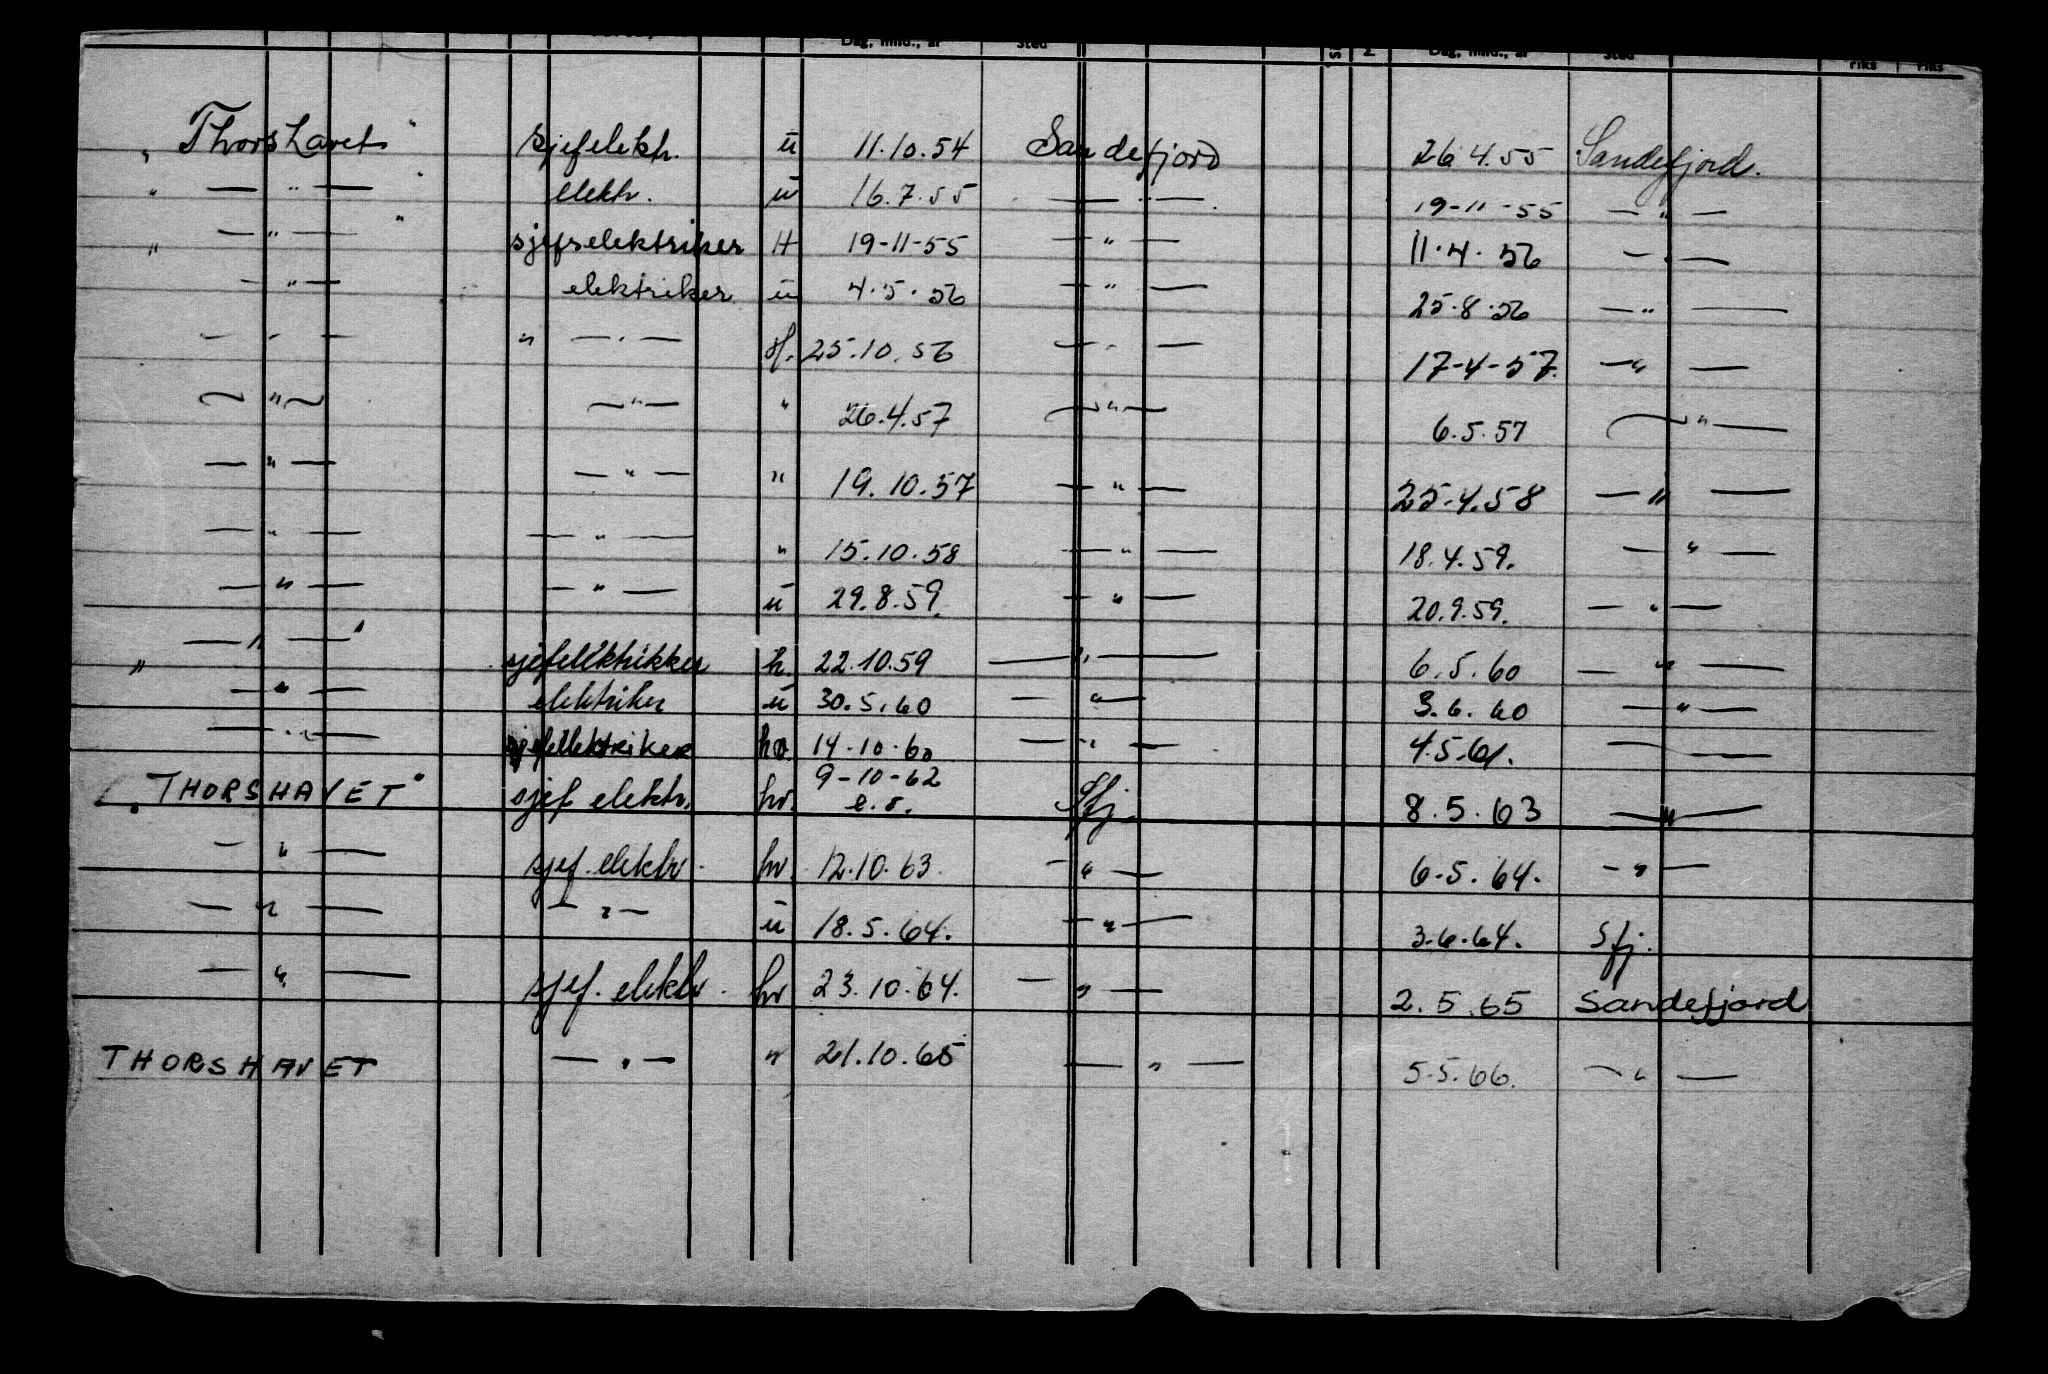 Dag, mnd., år Sted Dag, mnd., år Sted riks riks
„ Thorshavet " sjefelektr. u 11.10.54 Sandefjord 26.4.55 Sandefjord.
" — " — " elektr. u 16.7.55 — " — 19-11-55 — " —
" — " — " sjefselektriker H 19-11-55 — " — 11.4.56 — " —
— " — elektriker u 4.5.56 — " — 25.8.56 — " —
— " — " — " — 25.10.56 — " — 17-4-57. — " —
— " — — " — " 26.4.57 — " — 6.5.57 — " —
— " — — " — " 19.10.57 — " — 25.4.58 — " —
— " — — " — " 15.10.58 — " — 18.4.59. — " —
— " — — " — u 29.8.59. — " — 20.9.59. — " —
" — " — " sjefelektrikker h. 22.10.59 — " — 6.5.60 — " —
— " — elektriker u 30.5.60 — " — 3.6.60 — " —
— " — sjefellektriker hv. 14.10.60 — " — 4.5.61. — —
„ THORSHAVET " sjef elektr. hv. 9-10-62 e.o. Sfj. 8.5.63 — " —
— " — sjef. elektr. hv. 12.10.63. — " — 6.5.64. — " —
— " — — " — u 18.5.64. — " — 3.6.64. Sfj.
— " — sjef. elektr. hv 23.10.64. — " — 2.5.65 Sandefjord
THORSHAVET — " — " 21.10.65 — " — 5.5.66. — " —